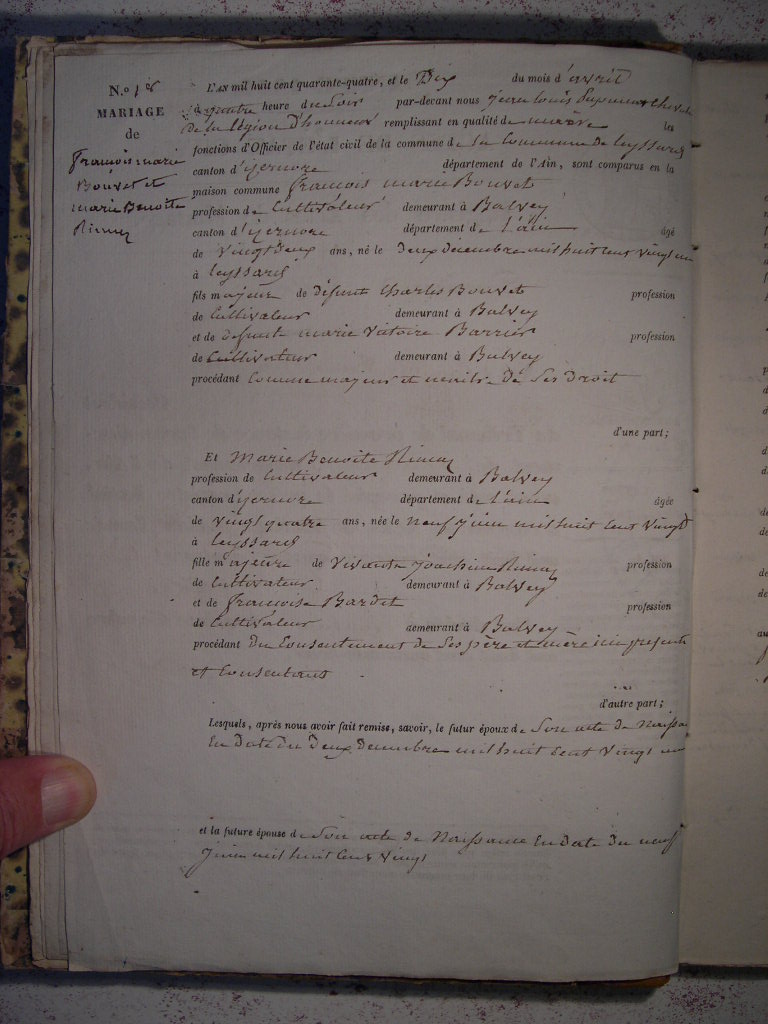 N.o 18
MARIAGE
de
francois marie
Bouvet et
marie Benoite
L'AN mil huit cent quarante-quatre, et le Dix du mois d'avril
à quatre heure du Soir par-devant nous jean louis Chevalier
De la légion D'honneur remplissant en qualité de maire les
fonctions d'Officier de l'état civil de la commune de la Commune de leyssard
canton d'izernore département de l'Ain, sont comparus en la
maison commune francois marie Bouvet
profession de Cultivateur demeurant à Balvey
canton d'izernore département de L'ain âgé
de vingt deux ans, né le Deux décembre mil huit cent vingt un
à leyssard
fils majeur de Défunt Charles Bouvet profession
de Cultivateur demeurant à Balvey
et de défunte marie Victoire Barrier profession
de Cultivateur demeurant à Balvey
procédant Comme majeur et maitre De Ses Droit
d'une part;
Et Marie Benoite
profession de Cultivateur demeurant à Balvey
canton d'izernore département de L'ain âgée
de vingt quatre ans, née le neuf juin mil huit Cent vingt
à leyssard
fille majeure de vivante joachim profession
de Cultivateur demeurant à Balvey
et de francoise Bardet profession
de Cultivateur demeurant à Balvey
procédant Du Consentement de Ses père et mère ici présents
et Consentant
d'autre part;
Lesquels, après nous avoir fait remise, savoir, le futur époux de Son acte de
En Date du Deux Décembre mil huit Cent vingt un
et la future épouse de Son acte de Naissance En Date Du neuf
juin mil huit Cent vingt